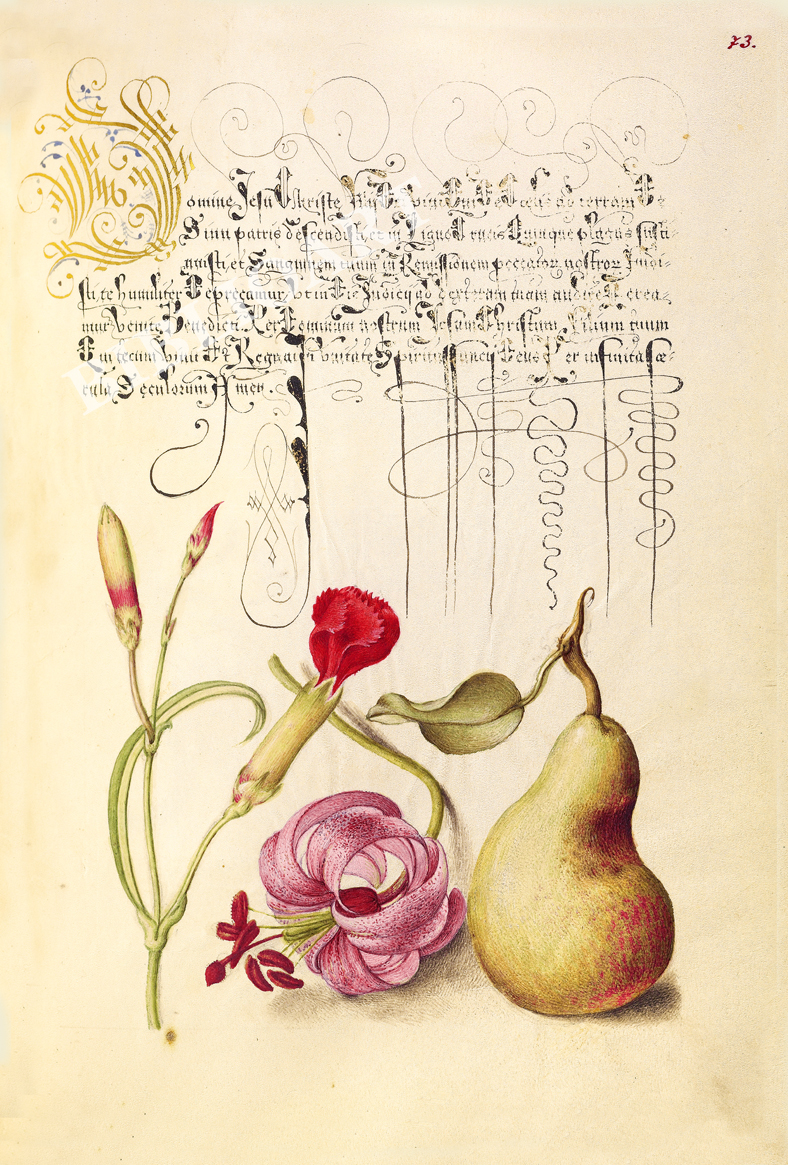 73.
Domine Jesu Christe Fili Dei vivi qui De Celis ad terram De
Sinu patris descendisti, et in Ligno Crucis Quinque plagas susti-
nuisti, et Sanguinem tuum in Remissionem peccator nostror
te humiliter Deprecamur, ut in Die Judicii ad dextram tuam
mur Venite Benedicti. Per Dominum nostrum Jesum Christum, filium tuum
Qui tecum vivit Et Regnat in unitate Spiritus sancti Deus Per infinita sæ-
cula Seculorum Amen.